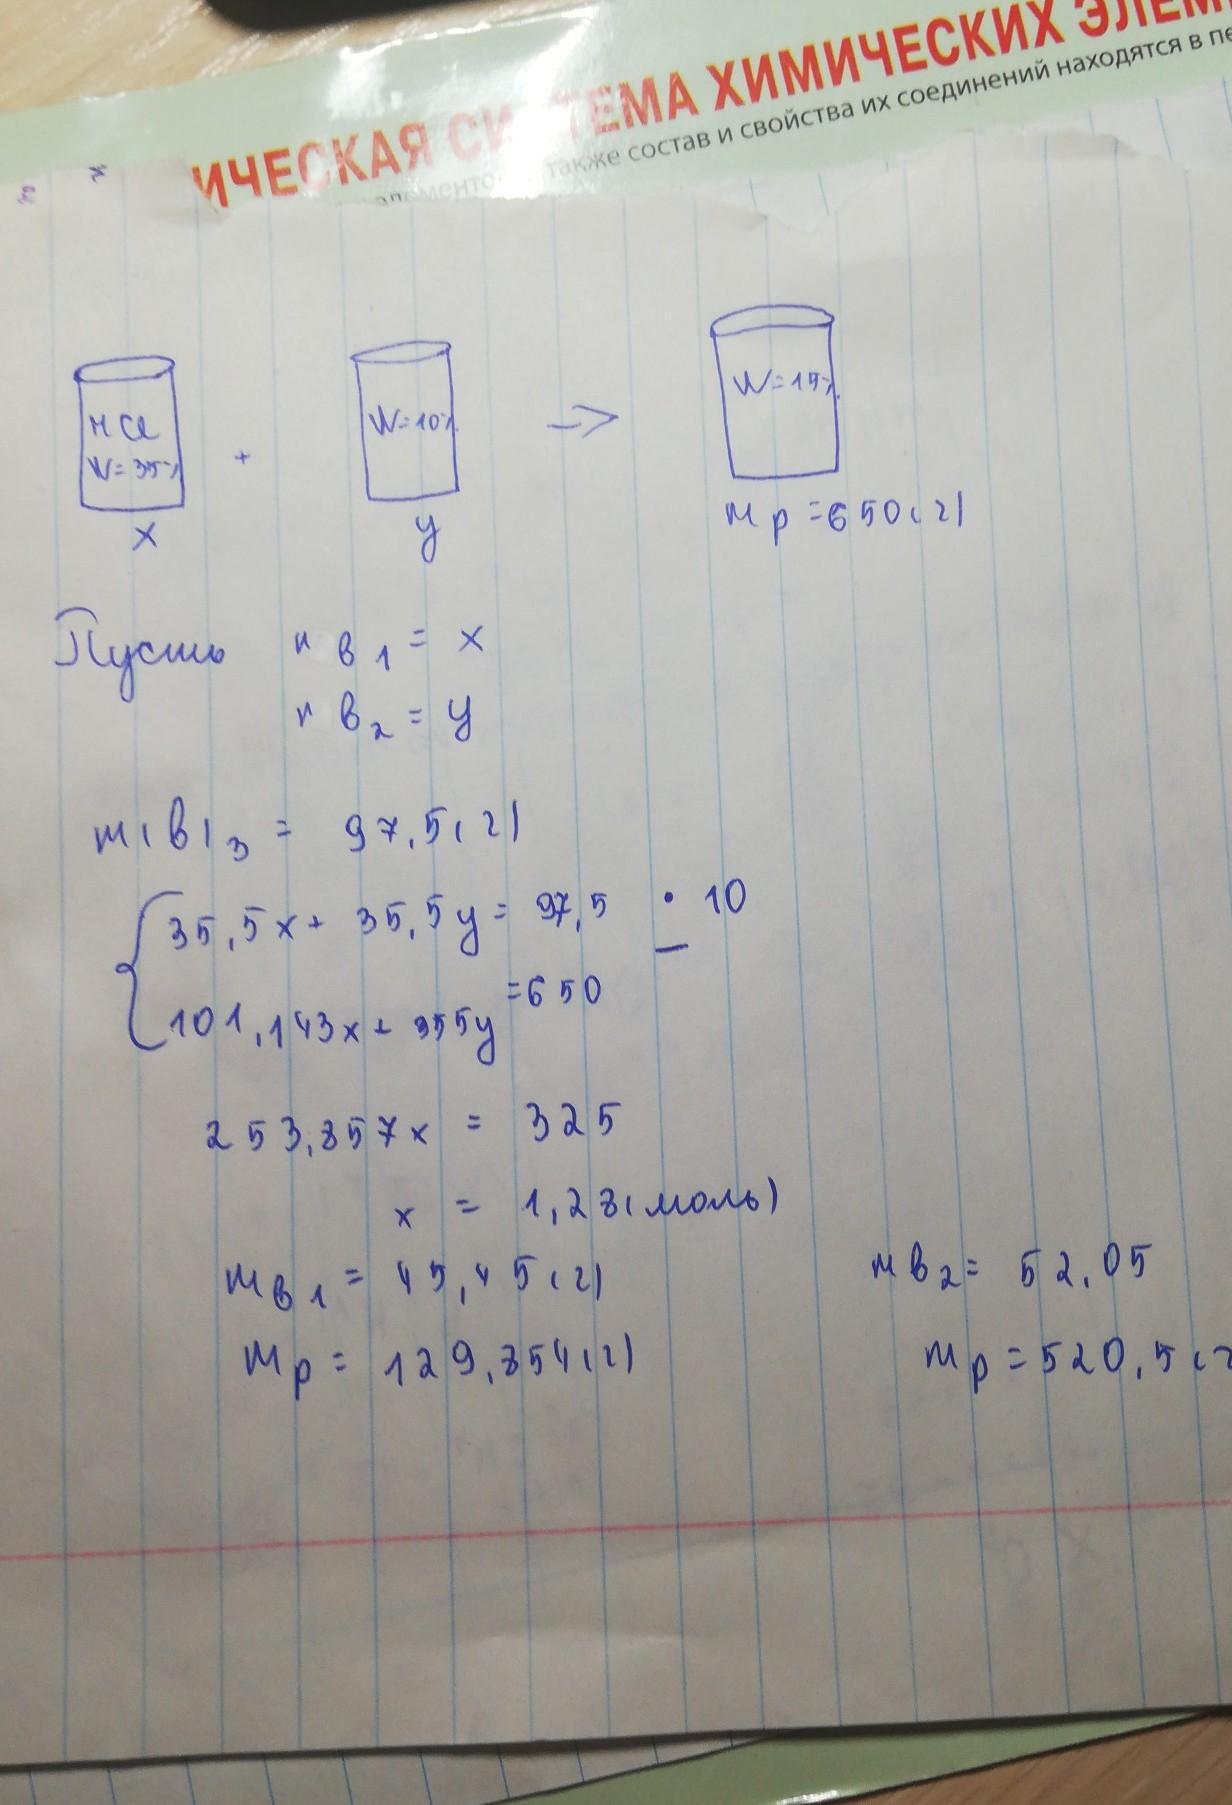 ИЧЕСКАЯ СИСТЕМА ХИМИЧЕСКИХ ЭЛЕМ
также состав и свойства их соединений находятся в пе
HCl
W=35%
+
W=10%
->
W=15%
x
y
mp=650(г)
Пусть n в1 = x
n в2 = y
m(в)3 = 97,5(г)
35,5x+ 35,5y= 97,5 · 10
101,143x+ 355y =650
253,857x = 325
x = 1,28(моль)
mв1 = 45,45(г)
mв2= 52,05
mp = 129,854(г)
mp =520,5(г